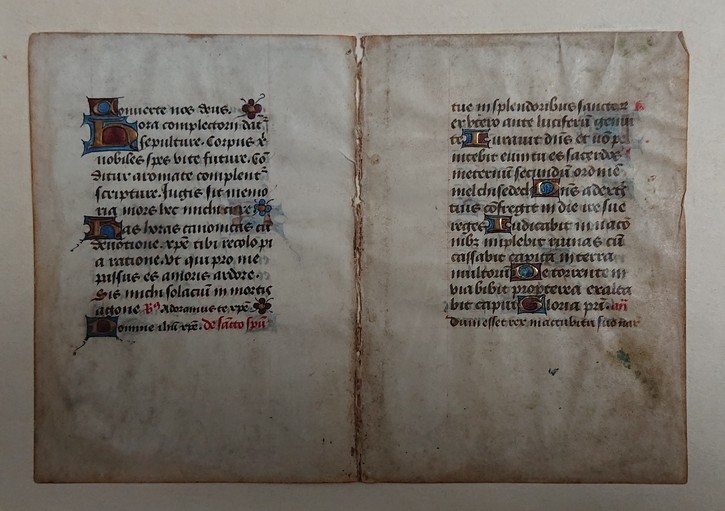 Conuerte nos deus.
Hora completorii dat̄
sepulture. Corpus x̄
nobiles spes vite future. Co
ditur aromate complent̄
scripture. Jugis sit memo
ria mors hec michi cure
Has horas canonicas cū
deuotione. xp̄e tibi recolo pi
a ratione. Vt qui pro me
passus es amoris ardore.
Sis michi solaciū in mortis
agone ℟ Adoramus te xp̄e.
Domine ihū xp̄e. de sācto spū
tue in splendoribus sanctor
ex vtero ante luciferū genui
te Iurauit dn̄s et nō pe
nitebit eum tu es sacerdos
in eternū secundū ordinē
melchisedech Dn̄s a dextr̄
tuis cōfregit in die ire sue
reges Iudicabit in natiō
nibꝫ implebit ruinas cū
cassabit capita in terra
multorū De torrente in
via bibit propterea exalta
bit caput Gloria pri. an̄
Dum esset rex in accubitu suo nar